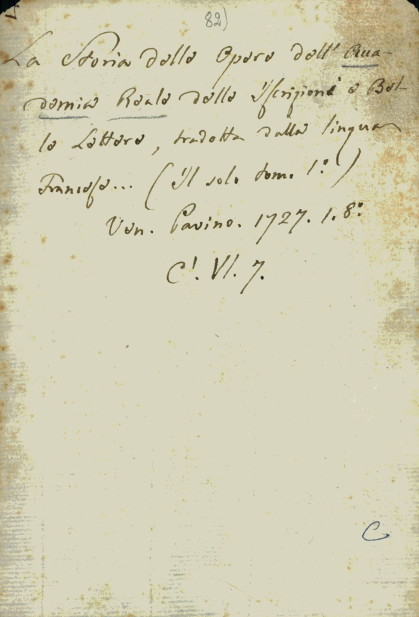 82)
La Storia delle Opere dell' Acca-
demia Reale delle Iscrizioni e Bel-
le Lettere, tradotta dalla lingua
Francese... (il solo tom. 1º.)
Ven. Pavino. 1727. 1. 8º.
C'. VI. 7.
C